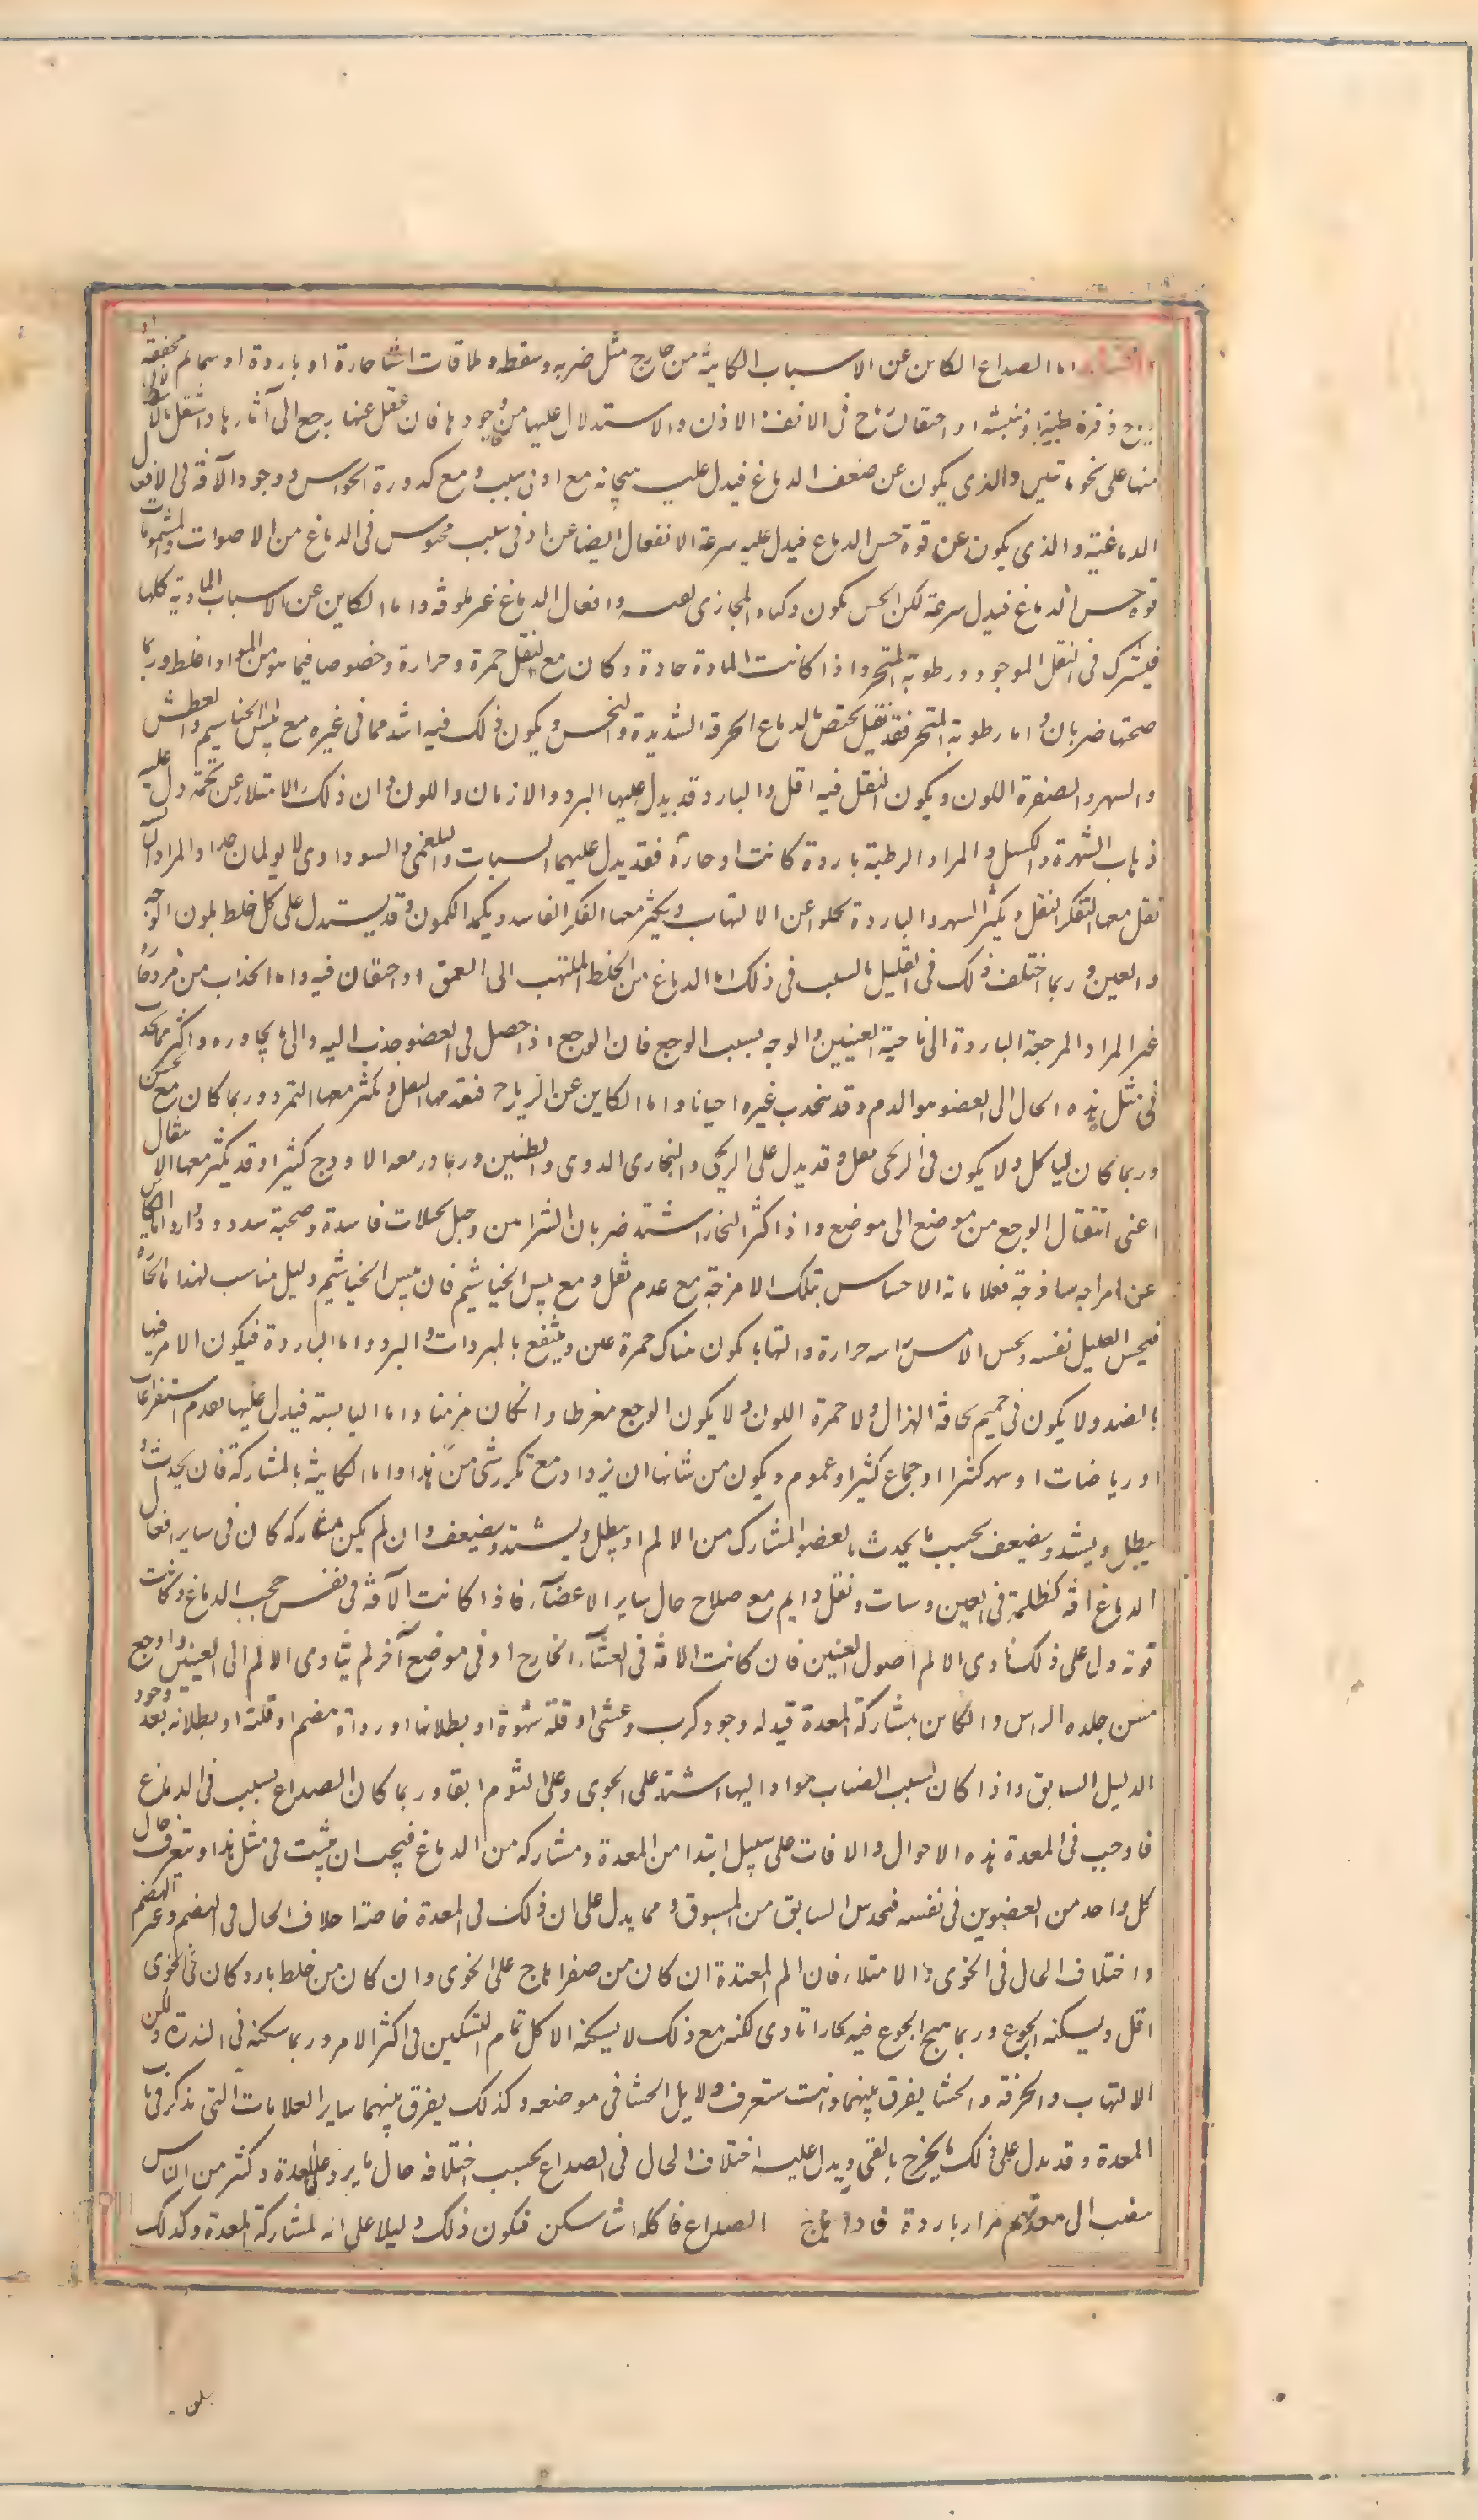 اما الصداع الكاين عن الاسباب الكاينة من خارج مثل ضربه وسقطه وملاقات اشيا حارة او باردة او سمايم مجففة او
ريح ذفرة طيبة او نبشه او احتقان ريح فى الانف والاذن والاستدلال عليها من وجودها فان غفل عنها رجع الى آثارها
منها على نحو ما تبين والذى يكون عن ضعف الدماغ فيدل عليه هيجانه مع ادنى سبب ومع كدورة الحواس ووجود الآفة فى الافعال
الدماغية والذى يكون عن قوة حس الدماغ فيدل عليه سرعة الانفعال ايضا عن ادنى سبب محسوس فى الدماغ من الاصوات والمشمومات
قوة حس الدماغ فيدل سرعة لكن الحس يكون وافعال الدماغ غير ماوفه واما الكاين عن الاسباب المادية كلها
فيشترك فى الثقل الموجود ورطوبة المنخر واذا كانت المادة حادة وكان مع الثقل حمرة وحرارة وخصوصا فيما هو من المواد اغلظ وربما
صحبها ضربان واما رطوبة المنخر فقد تقل يختص بالدماغ الحرقة الشديدة والنخس ويكون ذلك فيه اشد مما فى غيره مع يبس الخياشيم والعطش
والسهر والصفرة اللون ويكون الثقل فيه اقل والبارد قد يدل عليها البرد والازمان واللون وان ذلك الامتلا عن تخمة دل عليه
ذهاب الشهوة والكسل والمواد الرطبة باردة كانت او حارة فقد يدل عليهما السبات والبلغمى والسوداوى لا يولمان جدا والمواد
ثقل معها الثقل ويكثر السهر والباردة تخلو عن الالتهاب ويكثر معها الفكر الفاسد وقد يستدل على كل خلط بلون الوجه
والعين وربما اختلف ذلك فى القليل السبب فى ذلك اما الدماغ من الخلط الملتهب الى العمق او احتقان فيه واما انجذاب من
غير المواد المرجعة الباردة الى ناحية العينين والوجه بسبب الوجع فان الوجع اذا حصل فى العضو جذب اليه والى ما يجاوره واكثر ما ينجذب
فى مثل هذه الحال الى العضو هو الدم وقد ينجذب غيره احيانا واما الكاين عن الرياح فيقل معها الثقل ويكثر معها التمدد وربما كان مع نخس
وربما كان ليا كل ولا يكون فى الريحى ثقل وقد يدل على الريحى والبخارى الدوى والطنين وربما در معه الاوداج كثيرا وقد يكثر معها الانتقال
اعنى انتقال الوجع من موضع الى موضع واذا كثر البخار اشتد ضربان الشرايين وخيل تخيلات فاسدة وصحبه سدد ودوار واما الكاين
عن امزاجه ساذجة فعلاماته الاحساس بتلك الامزجة مع عدم ثقل ومع يبس الخياشيم فان يبس الخياشيم دليل مناسب لهذا اما الحارة
فيحس العليل نفسه ويحس الامس راسه حرارة والتهابا يكون هناك حمرة عين وينتفع بالمبردات والبرد واما الباردة فيكون الامر فيها
بالضد ولا يكون فى جميعهم نحافة الهزال ولا حمرة اللون ولا يكون الوجع مفرطا وان كان مزمنا واما اليابسة فيدل عليها تقدم استفراغات
او رياضات او سهر كثير او جماع كثير او غموم ويكون من شانها ان يزداد مع تكرر شى من هذا واما الكاينة بالمشاركة فان يحدث و
يبطل ويشتد ويضعف بحسب ما يحدث بالعضو المشارك من الالم او يبطل ويشتد ويضعف وان لم يكن مشاركه كان فى ساير افعال
الدماغ افه كظلمة فى العين وسبات وثقل دايم مع صلاح حال ساير الاعضآء فاذا كانت الآفة فى نفس حجب الدماغ وكانت
قوته دل على ذلك تادى الالم اصول العينين فان كانت الافة فى الغشآء الخارج او فى موضع آخر لم يتادى الالم الى العينين واوجع
مس جلده الراس والكاين بمشاركة المعدة فيدل له وجود كرب وغشى او قلة شهوة او بطلانها او رداة هضم او قلته او بطلانه بعد وجود
الدليل السابق واذا كان السبب انصباب مواد اليها اشتد على الجوى وعلى النوم ابقا وربما كان الصداع بسبب فى الدماغ
فاوجب فى المعدة هذه الاحوال والافات على سبيل ابتدا من المعدة ومشاركه من الدماغ فيجب ان يثبت فى مثل هذا ويتعرف حال
كل واحد من العضوين فى نفسه فتحدس السابق من المسبوق ومما يدل على ان ذلك فى المعدة خاصة اختلاف الحال فى الهضم وغير الهضم
واختلاف الحال فى الخوى والامتلاء فان الم المعدة ان كان من صفرا هاج على الخوى وان كان من خلط بارد كان فى الخوى
اقل ويسكنه الجوع وربما هيج الجوع فيه بخارا تادى لكنه مع ذلك لا يسكنه الاكل تمام التسكين فى اكثر الامر وربما سكنه فى الندرة ولكن
الالتهاب والحرقة والحشا يفرق بينهما وانت ستعرف دلايل الحشا فى موضعه وكذلك يفرق بينهما ساير العلامات التى نذكر فى باب
المعدة وقد يدل على ذلك ما يخرج بالقى ويدل عليه اختلاف الحال فى الصداع بحسب اختلافه حال ما يرد على المعدة وكثر من الناس
ينصب الى معدتهم مرار باردة فاذا هاج الصداع فاكله اشيا سكن فيكون ذلك دليلا على انه لمشاركة المعدة وكذلك